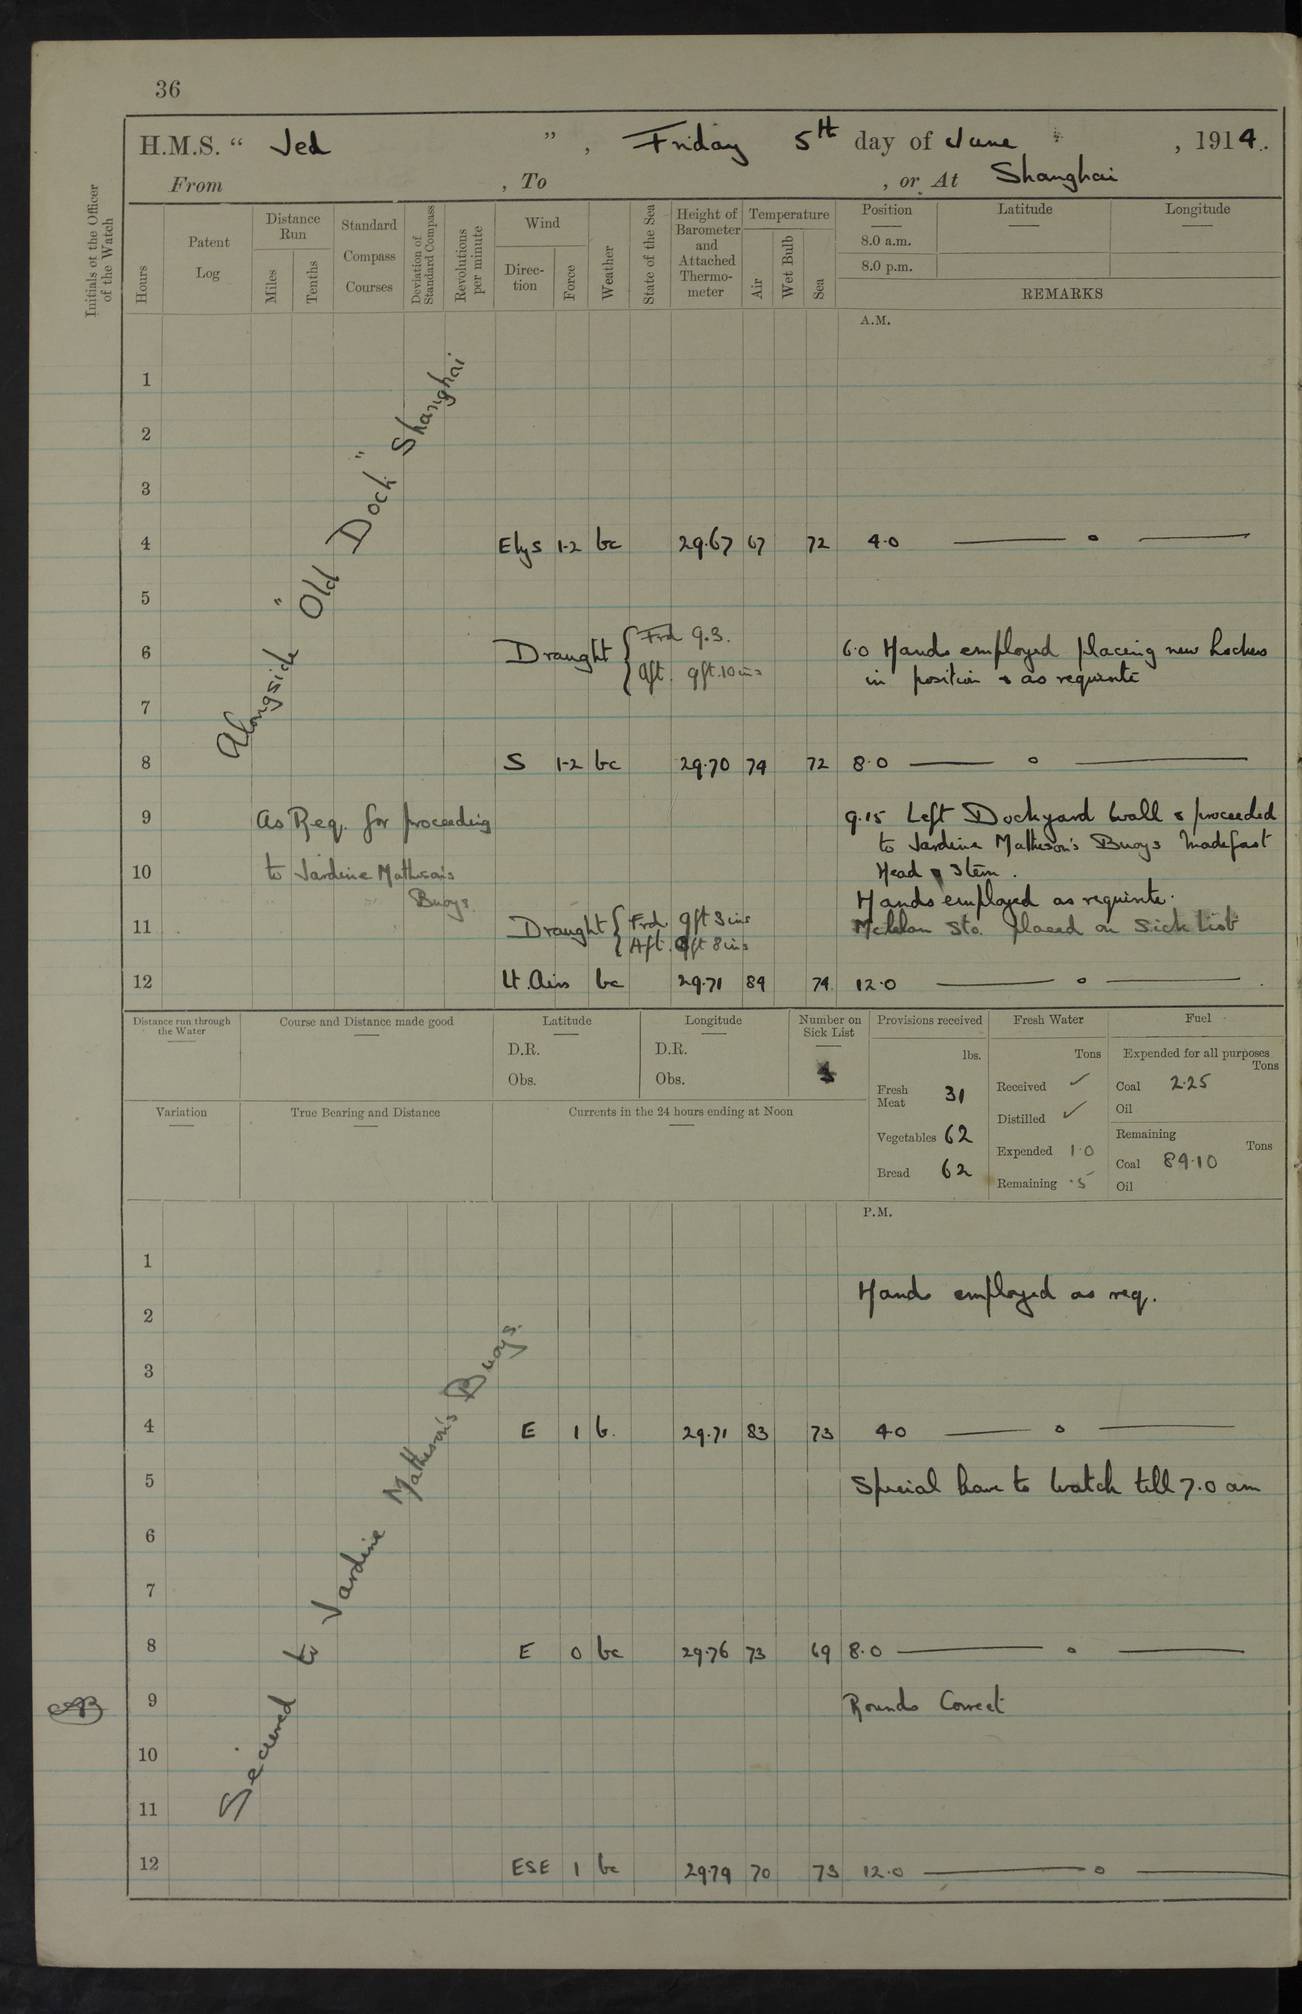 36
H.M.S. “ Jed ”, Friday 5th day of June , 1914.
From , To , or At Shanghai
Initials of the Officer of the Watch
Hours
Patent Log
Distance Run
Miles
Tenths
Standard Compass Courses
Deviation of Standard Compass
Revolutions per minute
Wind
Direc-tion
Force
Weather
State of the Sea
Height of Barometer and Attached Thermo-meter
Temperature
Air
Wet Bulb
Sea
Position Latitude Longitude
8.0 a.m.
8.0 p.m.
REMARKS
A.M.
Alongside "Old Dock" Shanghai
1
2
3
4 Elys 1-2 bc 29.67 67 72 4.0 —— o ——
5
6 Draught { Frd 9.3. 6.0 Hands employed placing new Lockers
Aft. 9ft.10ins in position & as requisite
7
8 S 1-2 bc 29.70 74 72 8.0 —— o ——
9 As Req. for proceeding 9.15 Left Dockyard Wall & proceeded
to Jardine Matheson's Buoys Madefast
10 to Jardine Matheson's Head & Stern.
Buoys. Hands employed as requisite.
11 Draught { Frd. 9ft 3ins Sto. placed on Sick List
Aft. 9ft 8ins
12 Lt. Airs bc 29.71 84 74 12.0 —— o ——
Distance run through the Water
Course and Distance made good
Latitude
D.R.
Obs.
Longitude
D.R.
Obs.
Number on Sick List
Provisions received
lbs.
Fresh Meat 31
Vegetables 62
Bread 62
Fresh Water
Tons
Received ✓
Distilled ✓
Expended 1.0
Remaining .5
Fuel
Expended for all purposes
Tons
Coal 2.25
Oil
Remaining
Tons
Coal 89.10
Oil
Variation
True Bearing and Distance
Currents in the 24 hours ending at Noon
P.M.
Secured to Jardine Matheson's Buoys.
1
Hands employed as req.
2
3
4 E 1 b. 29.71 83 73 4.0 —— o ——
5 Special leave to Watch till 7.0 am
6
7
8 E 0 bc 29.76 73 69 8.0 —— o ——
9 Rounds Correct
10
11
12 ESE 1 bc 29.79 70 73 12.0 —— o ——